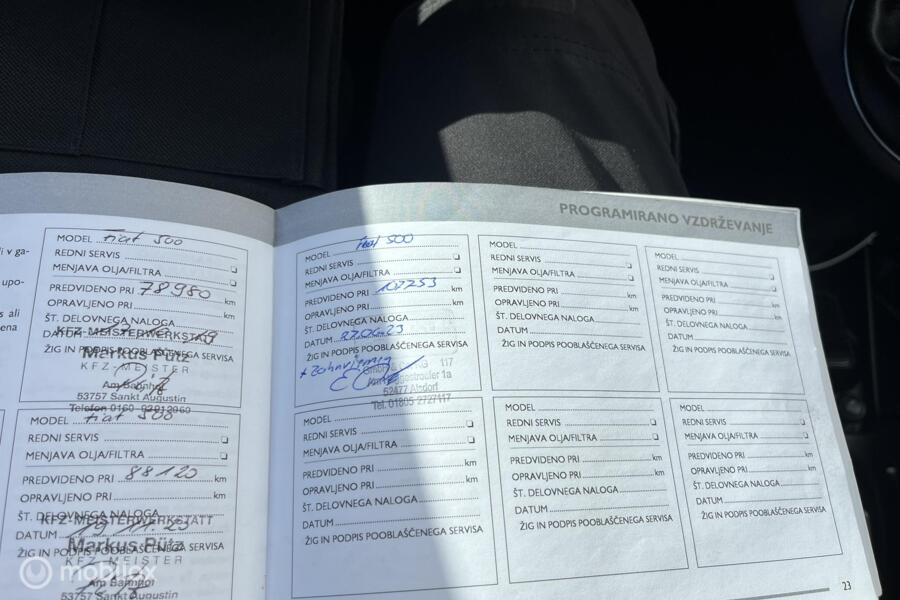 PROGRAMIRANO VZDRŽEVANJE
li v ga-
upo-
s ali
ena
MODEL Fiat 500
REDNI SERVIS
MENJAVA OLJA/FILTRA
PREDVIDENO PRI 78980 km
OPRAVLJENO PRI km
ŠT. DELOVNEGA NALOGA
DATUM
KFZ-MEISTERWERKSTATT
ŽIG IN PODPIS POOBLAŠČENEGA SERVISA
Markus Pütz
KFZ-MEISTER
Am Bahnhof
53757 Sankt Augustin
Telefon 0160
MODEL Fiat 500
REDNI SERVIS
MENJAVA OLJA/FILTRA
PREDVIDENO PRI 88120 km
OPRAVLJENO PRI km
ŠT. DELOVNEGA NALOGA
KFZ-MEISTERWERKSTATT
DATUM
ŽIG IN PODPIS POOBLAŠČENEGA SERVISA
Markus Pütz
KFZ-MEISTER
Am Bahnhof
53757 Sankt Augustin
MODEL Fiat 500
REDNI SERVIS
MENJAVA OLJA/FILTRA
PREDVIDENO PRI 107253 km
OPRAVLJENO PRI km
ŠT. DELOVNEGA NALOGA
DATUM 27.04.23
ŽIG IN PODPIS POOBLAŠČENEGA SERVISA
+ Zahnriemen
117
1a
52477 Alsdorf
Tel. 01805 2727117
MODEL
REDNI SERVIS
MENJAVA OLJA/FILTRA
PREDVIDENO PRI km
OPRAVLJENO PRI km
ŠT. DELOVNEGA NALOGA
DATUM
ŽIG IN PODPIS POOBLAŠČENEGA SERVISA
MODEL
REDNI SERVIS
MENJAVA OLJA/FILTRA
PREDVIDENO PRI km
OPRAVLJENO PRI km
ŠT. DELOVNEGA NALOGA
DATUM
ŽIG IN PODPIS POOBLAŠČENEGA SERVISA
MODEL
REDNI SERVIS
MENJAVA OLJA/FILTRA
PREDVIDENO PRI km
OPRAVLJENO PRI km
ŠT. DELOVNEGA NALOGA
DATUM
ŽIG IN PODPIS POOBLAŠČENEGA SERVISA
MODEL
REDNI SERVIS
MENJAVA OLJA/FILTRA
PREDVIDENO PRI km
OPRAVLJENO PRI km
ŠT. DELOVNEGA NALOGA
DATUM
ŽIG IN PODPIS POOBLAŠČENEGA SERVISA
MODEL
REDNI SERVIS
MENJAVA OLJA/FILTRA
PREDVIDENO PRI km
OPRAVLJENO PRI km
ŠT. DELOVNEGA NALOGA
DATUM
ŽIG IN PODPIS POOBLAŠČENEGA SERVISA
23
mobilex